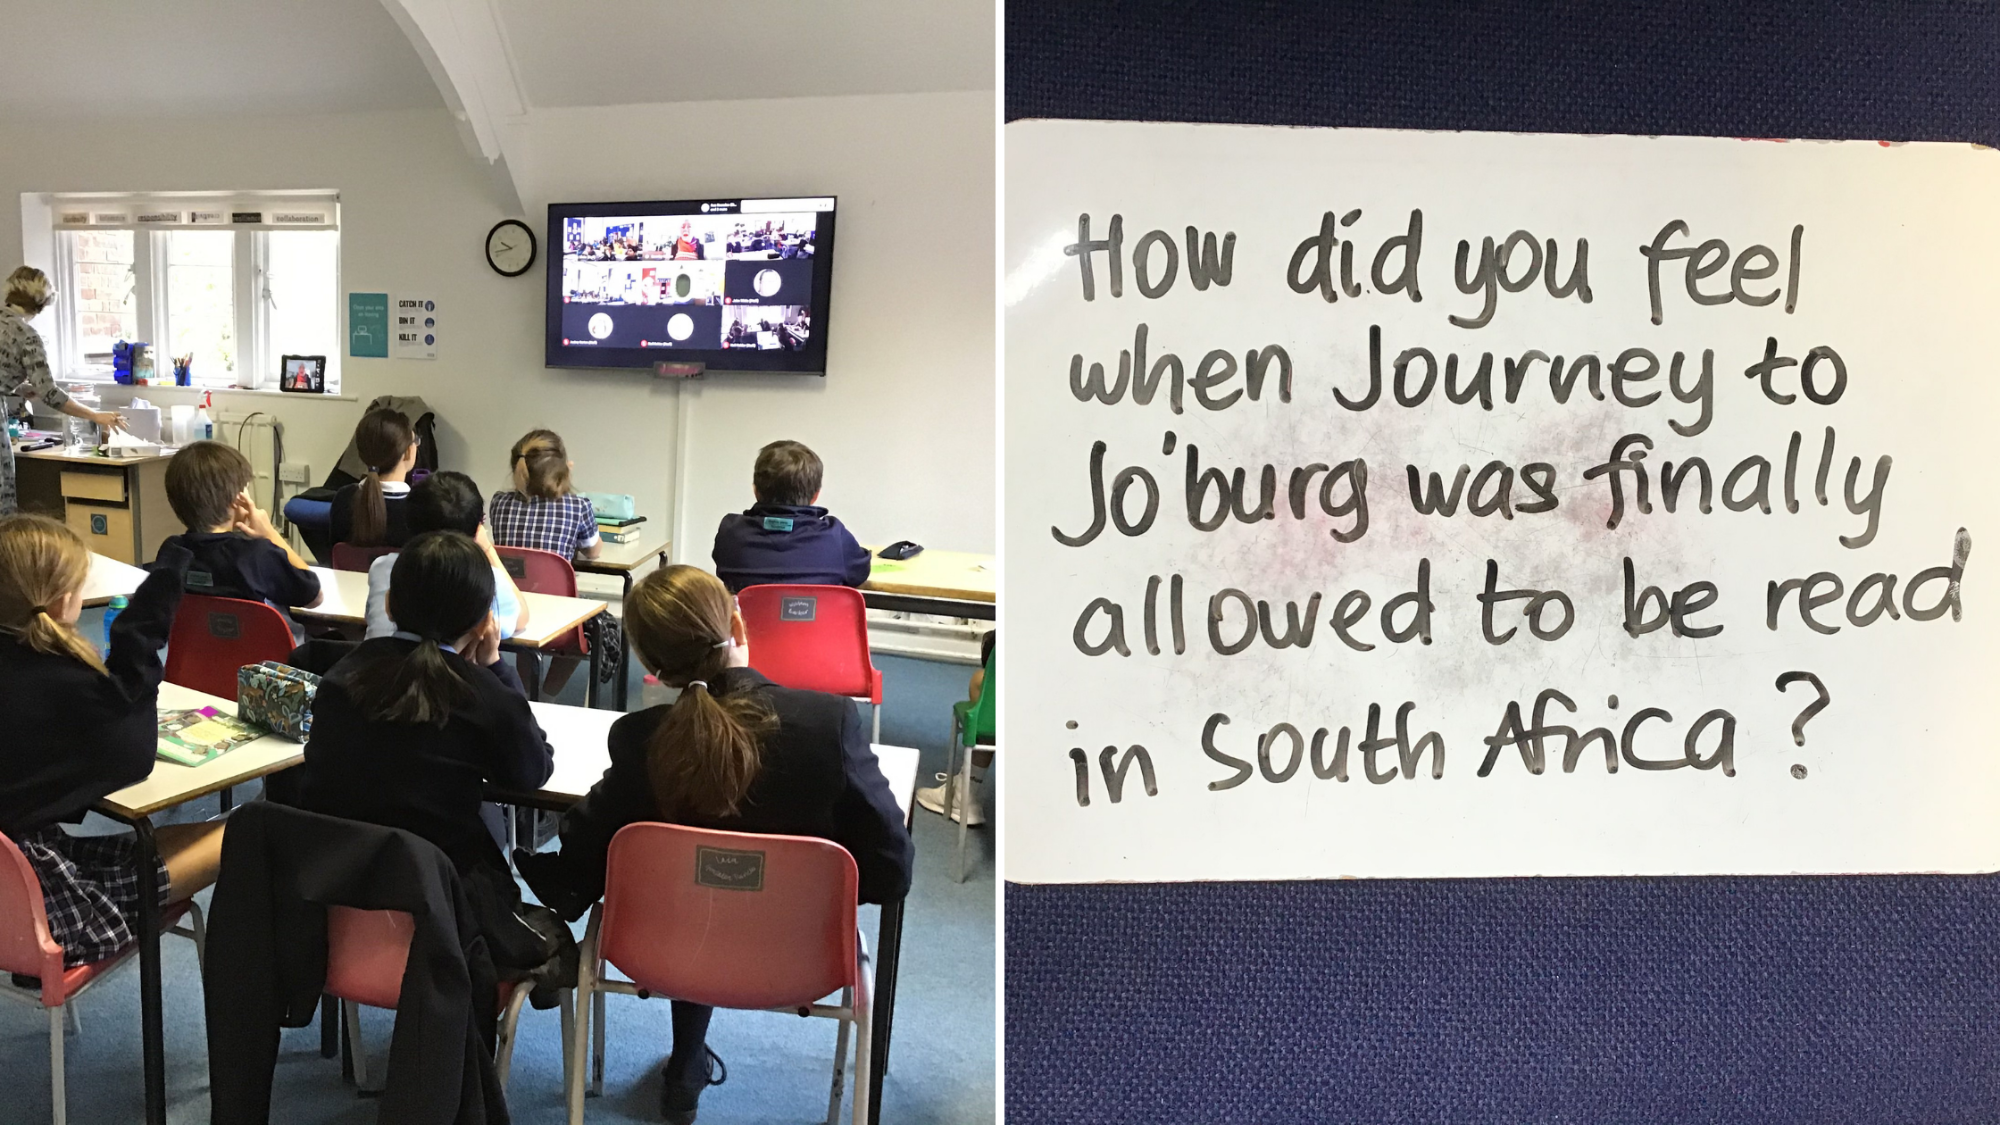 responsibility
collaboration
CATCH IT
BIN IT
KILL IT
How did you feel
when Journey to
Jo'burg was finally
allowed to be read
in South Africa?